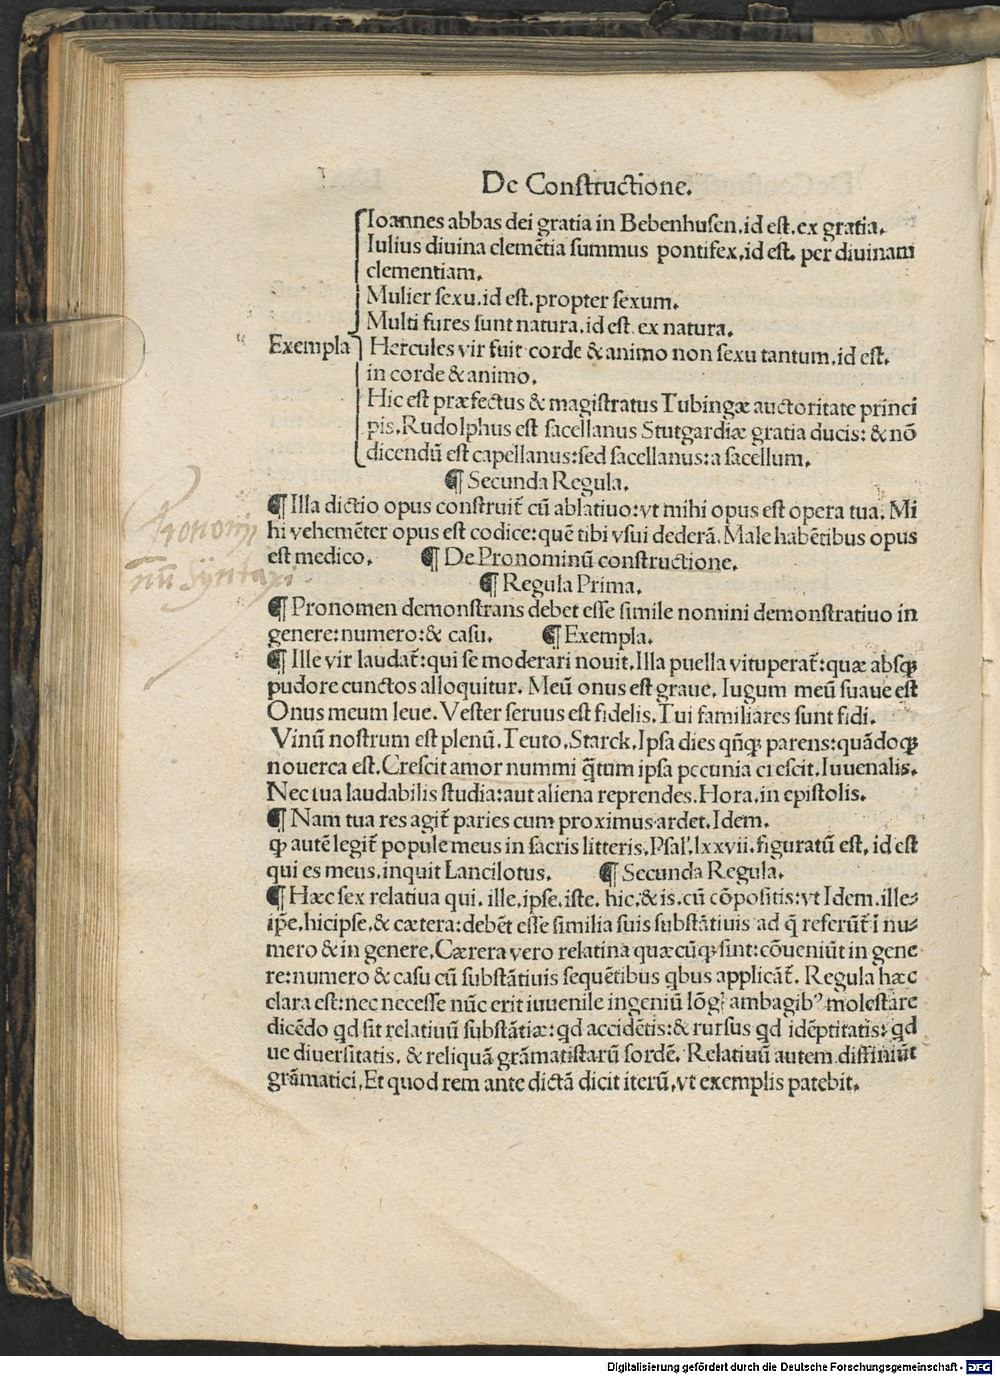 De Constructione.
Ioannes abbas dei gratia in Bebenhusen. id est. ex gratia.
Iulius diuina clemẽtia summus pontifex. id est. per diuinam
clementiam.
Mulier sexu. id est. propter sexum.
Multi fures sunt natura. id est. ex natura.
Exempla Hercules vir fuit corde & animo non sexu tantum. id est.
in corde & animo.
Hic est præfectus & magistratus Tubingæ auctoritate princi
pis. Rudolphus est sacellanus Stutgardiæ gratia ducis: & nõ
dicendũ est capellanus: sed sacellanus: a sacellum.
¶ Secunda Regula.
¶ Illa dictio opus construit̃ cũ ablatiuo: vt mihi opus est opera tua. Mi
hi vehemẽter opus est codice: quẽ tibi vsui dederã. Male habẽtibus opus
est medico. ¶ De Pronominũ constructione.
Pronomi
nũ Syntaxi
¶ Regula Prima.
¶ Pronomen demonstrans debet esse simile nomini demonstratiuo in
genere: numero: & casu. ¶ Exempla.
¶ Ille vir laudat̃: qui se moderari nouit. Illa puella vituperat̃: quæ absqꝫ
pudore cunctos alloquitur. Meũ onus est graue. Iugum meũ suaue est
Onus meum leue. Vester seruus est fidelis. Tui familiares sunt fidi.
Vinũ nostrum est plenũ. Teuto. Starck. Ipsa dies qñqꝫ parens: quãdoqꝫ
nouerca est. Crescit amor nummi q̃tum ipsa pecunia crescit. Iuuenalis.
Nec tua laudabilis studia: aut aliena reprendes. Hora. in epistolis.
¶ Nam tua res agit̃ paries cum proximus ardet. Idem.
ꝙ autẽ legit̃ popule meus in sacris litteris. Psal'. lxxvii. figuratũ est, id est
qui es meus, inquit Lancilotus. ¶ Secunda Regula.
¶ Hæc sex relatiua qui. ille. ipse. iste. hic. & is. cũ cõpositis: vt Idem. ille⸗
ip̃e. hicipse. & cætera: debẽt esse similia suis substãtiuis ad q̃ referũt̃ ĩ nu⸗
mero & in genere. Cærera vero relatina quæcũqꝫ sint: cõueniũt in gene
re: numero & casu cũ substãtiuis sequẽtibus qbus applicãt̃. Regula hæc
clara est: nec necesse nũc erit iuuenile ingeniũ lõgꝭ ambagibꝰ molestare
dicẽdo qd sit relatiuũ substãtiæ: qd accidẽtis: & rursus qd idẽptitatis: qd
ue diuersitatis. & reliquã grãmatistarũ sordẽ. Relatiuũ autem diffiniũt
grãmatici. Et quod rem ante dictã dicit iterũ, vt exemplis patebit.
Digitalisierung gefördert durch die Deutsche Forschungsgemeinschaft - DFG